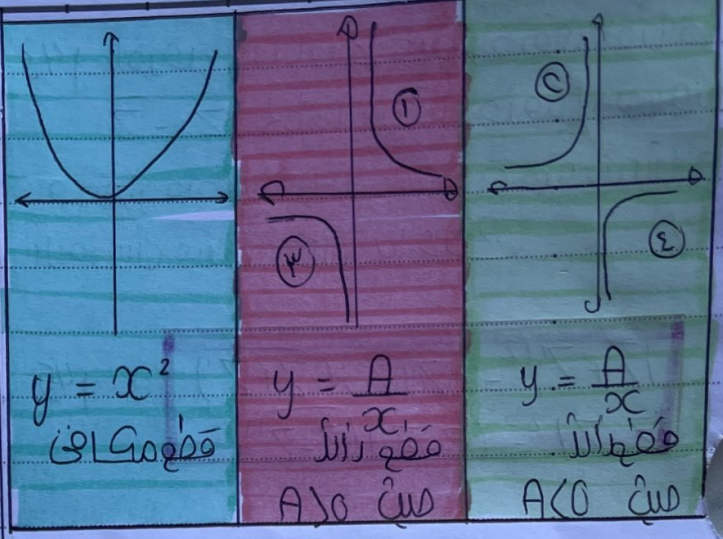 y = x²
قطع مكافئ
١
٣
y = A/x
قطع زائد
حيث A>0
٢
٤
y = A/x
قطع زائد
حيث A<0